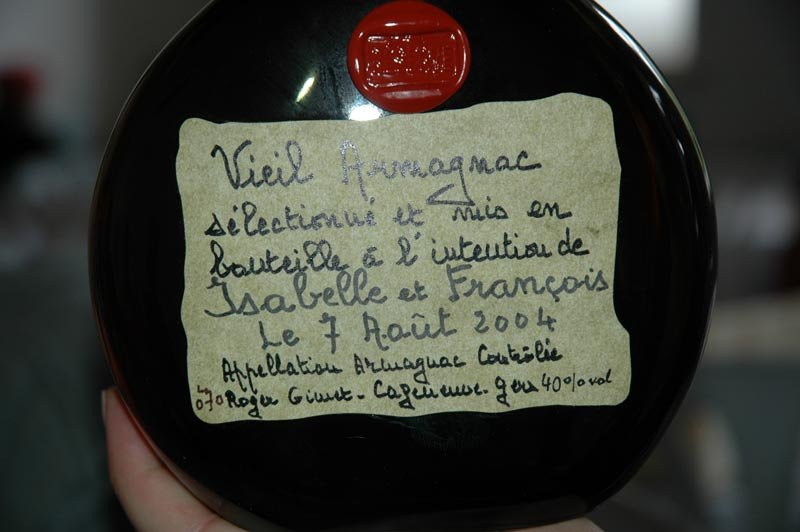 Vieil Armagnac
sélectionné et mis en
bouteille à l'intention de
Isabelle et François
Le 7 Août 2004
Appellation Armagnac Contrôlée
L 070 Roger Gimet - Cazeneuve - gers 40% vol